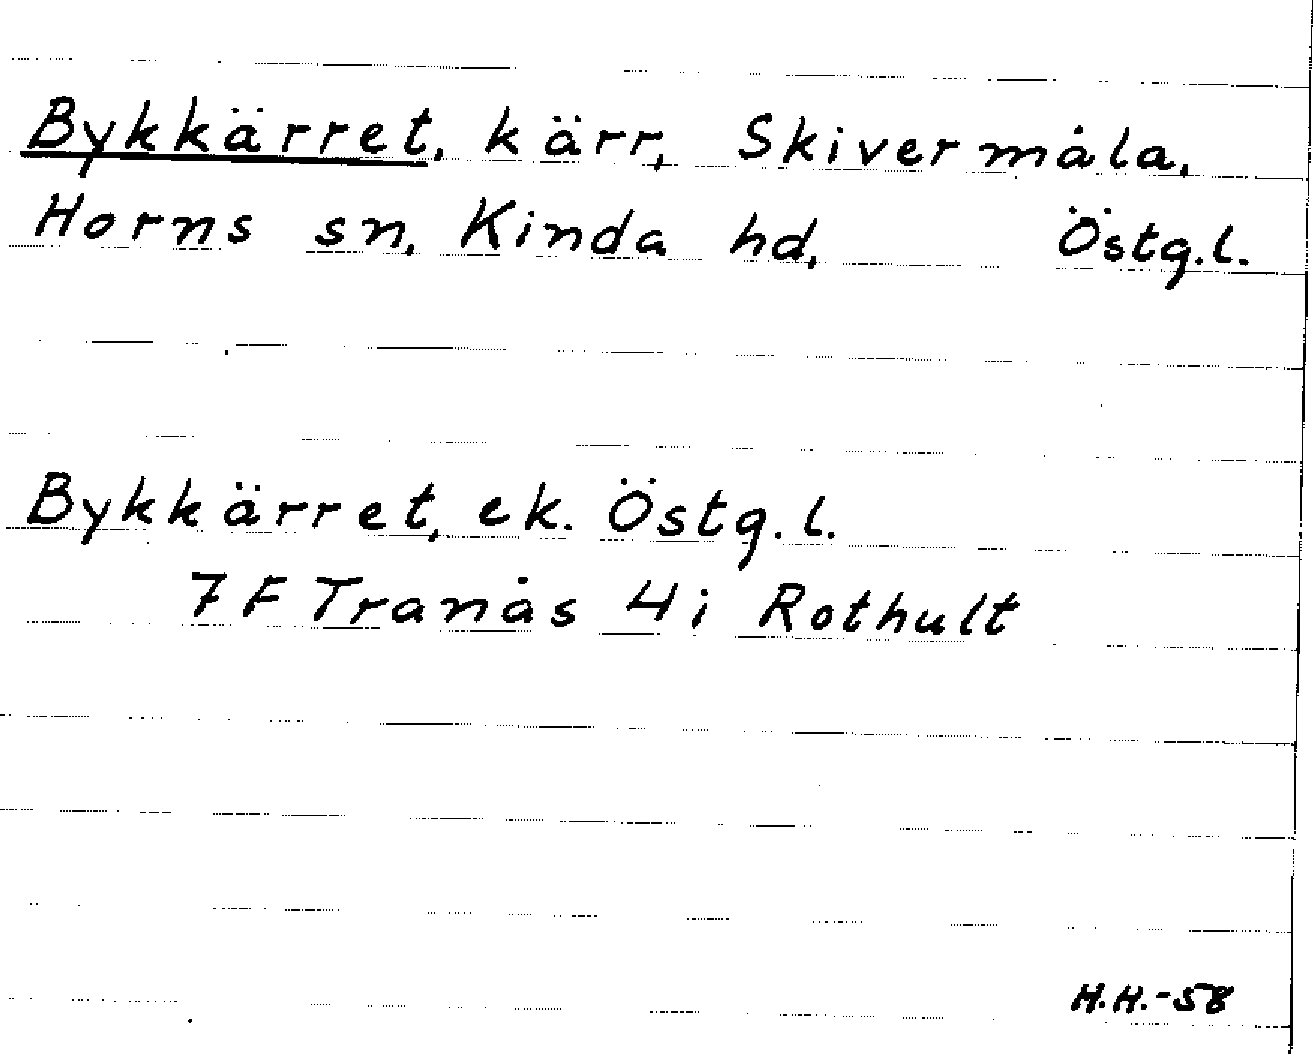 Bykkärret, kärr, Skivermåla,
Horns sn, Kinda hd, Östg.l.
Bykkärret, ek. Östg.l.
7 F Tranås 4 i Rothult
H.H.-58